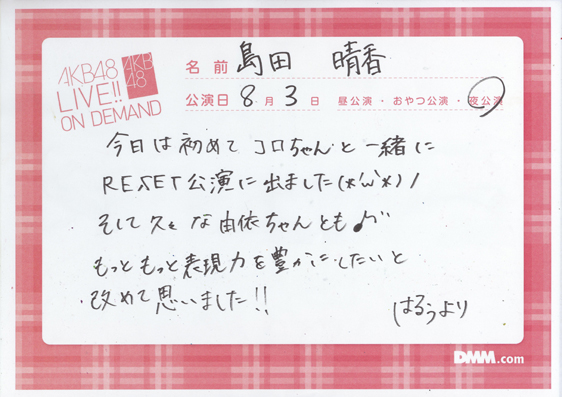 AKB48
LIVE!!
ON DEMAND
AKB
48
名前 島田 晴香
公演日 8月3日 昼公演・おやつ公演・夜公演
今日は初めてコロちゃんと一緒に
RESET公演に出ました(*'ω'*)/
そして久々な由依ちゃんとも♪
もっともっと表現力を豊かにしたいと
改めて思いました!!
はるぅより
DMM.com